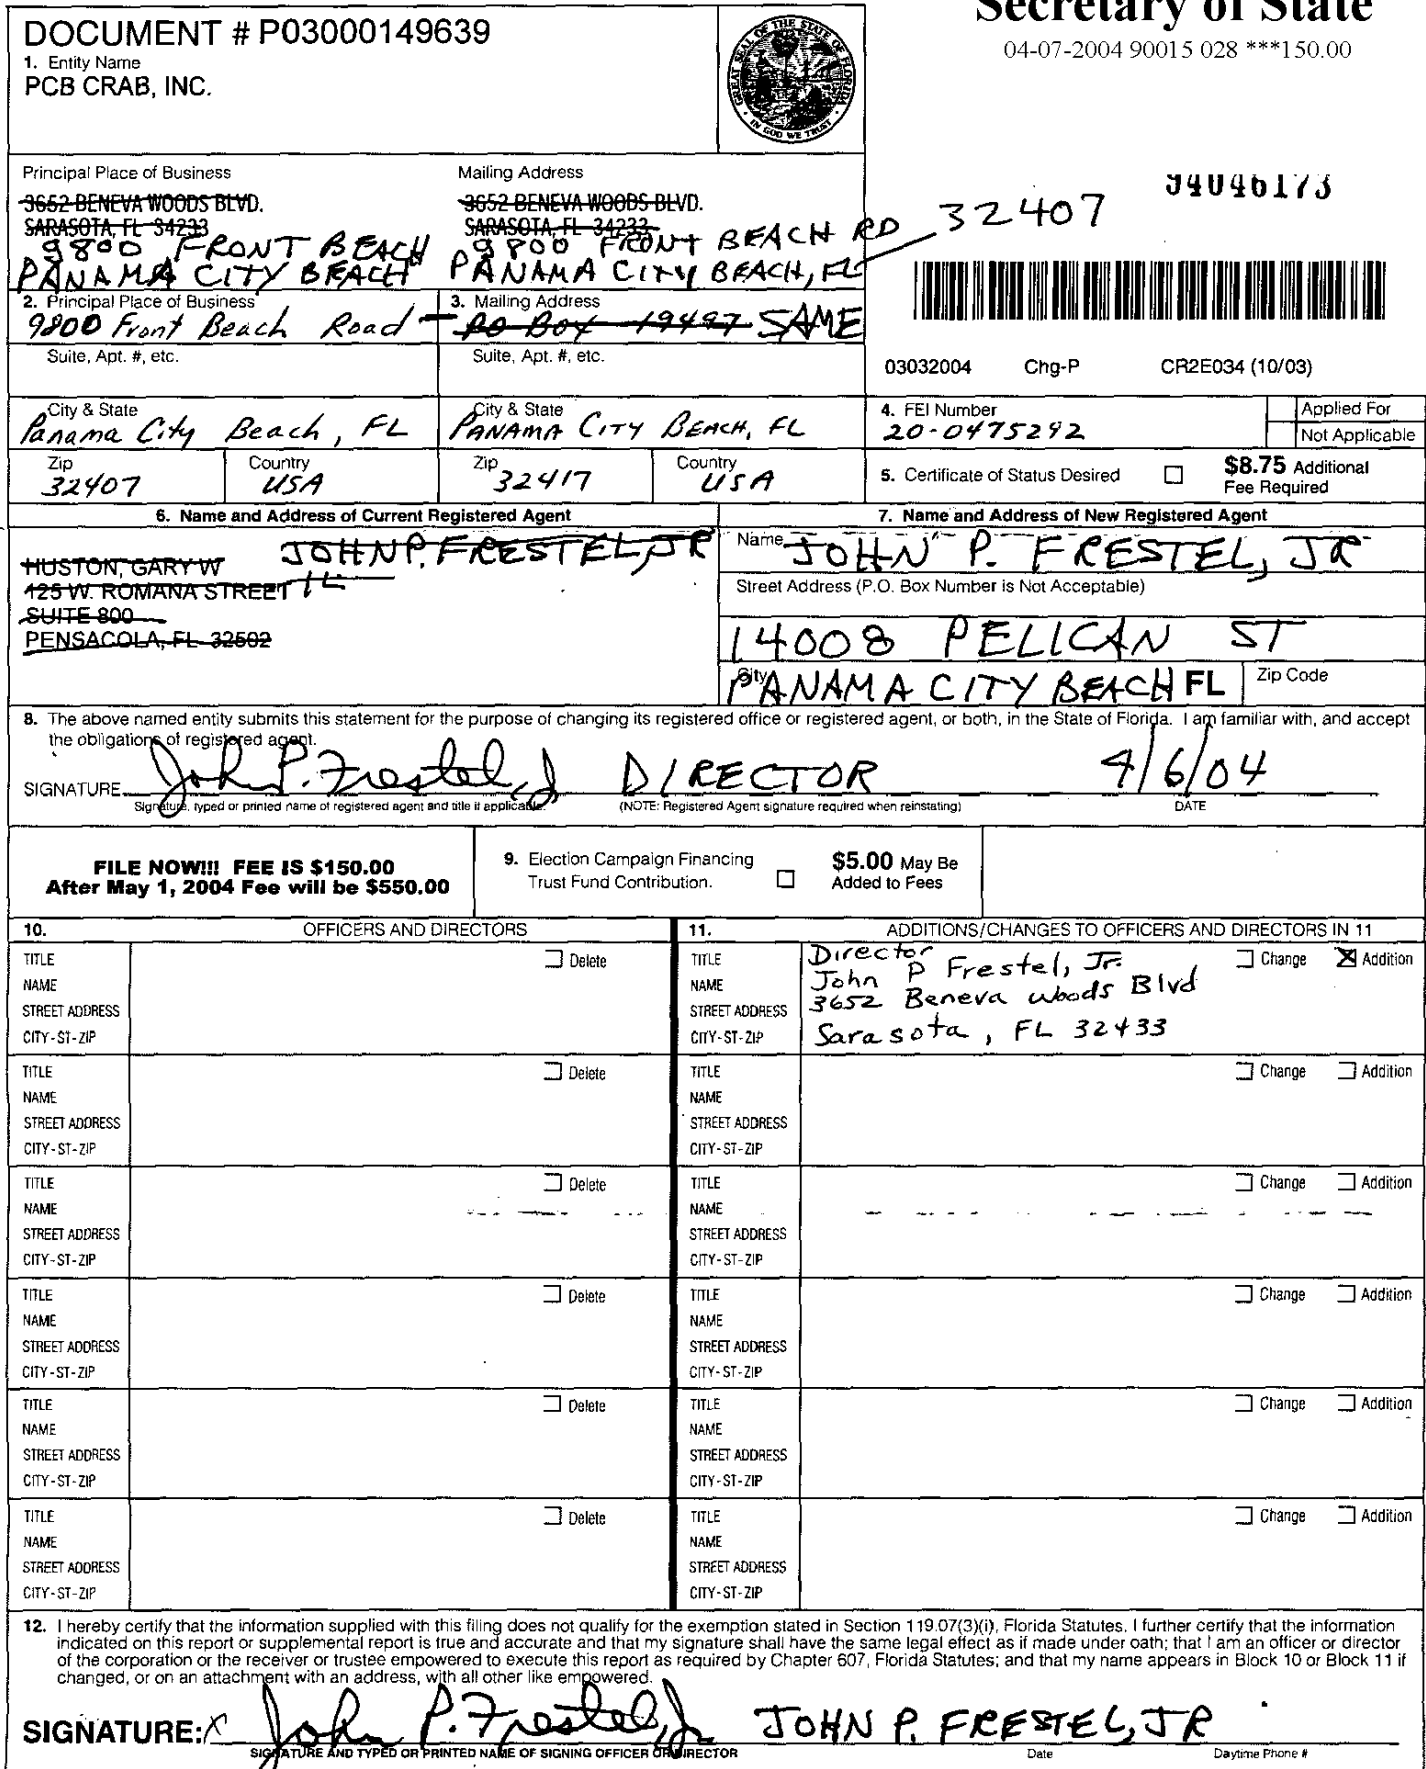 Secretary of State
04-07-2004 90015 028 ***150.00
DOCUMENT # P03000149639
1. Entity Name
PCB CRAB, INC.
GREAT SEAL OF THE STATE OF FLORIDA
IN GOD WE TRUST
Principal Place of Business
3652 BENEVA WOODS BLVD.
SARASOTA, FL 34233
9800 FRONT BEACH
PANAMA CITY BEACH
Mailing Address
3652 BENEVA WOODS BLVD.
SARASOTA, FL 34233
9800 FRONT BEACH RD
PANAMA CITY BEACH, FL 32407
94046173
2. Principal Place of Business
9800 Front Beach Road
3. Mailing Address
PO Box 19497 SAME
Suite, Apt. #, etc.
Suite, Apt. #, etc.
03032004 Chg-P CR2E034 (10/03)
City & State
Panama City Beach, FL
City & State
PANAMA CITY BEACH, FL
4. FEI Number
20-0475292
Applied For
Not Applicable
Zip
32407
Country
USA
Zip
32417
Country
USA
5. Certificate of Status Desired
$8.75 Additional
Fee Required
6. Name and Address of Current Registered Agent
JOHN P. FRESTEL, JR
HUSTON, GARY W
125 W. ROMANA STREET
SUITE 800
PENSACOLA, FL 32502
7. Name and Address of New Registered Agent
Name JOHN P. FRESTEL, JR
Street Address (P.O. Box Number is Not Acceptable)
14008 PELICAN ST
City PANAMA CITY BEACH FL Zip Code
8. The above named entity submits this statement for the purpose of changing its registered office or registered agent, or both, in the State of Florida. I am familiar with, and accept
the obligations of registered agent.
SIGNATURE John P. Frestel, J DIRECTOR 4/6/04
Signature, typed or printed name of registered agent and title if applicable. (NOTE: Registered Agent signature required when reinstating) DATE
FILE NOW!!! FEE IS $150.00
After May 1, 2004 Fee will be $550.00
9. Election Campaign Financing
Trust Fund Contribution.
$5.00 May Be
Added to Fees
10. OFFICERS AND DIRECTORS
11. ADDITIONS/CHANGES TO OFFICERS AND DIRECTORS IN 11
TITLE Delete
NAME
STREET ADDRESS
CITY-ST-ZIP
TITLE Director Change Addition
NAME John P Frestel, Jr.
STREET ADDRESS 3652 Beneva woods Blvd
CITY-ST-ZIP Sarasota, FL 32433
TITLE Delete
NAME
STREET ADDRESS
CITY-ST-ZIP
TITLE Change Addition
NAME
STREET ADDRESS
CITY-ST-ZIP
TITLE Delete
NAME
STREET ADDRESS
CITY-ST-ZIP
TITLE Change Addition
NAME
STREET ADDRESS
CITY-ST-ZIP
TITLE Delete
NAME
STREET ADDRESS
CITY-ST-ZIP
TITLE Change Addition
NAME
STREET ADDRESS
CITY-ST-ZIP
TITLE Delete
NAME
STREET ADDRESS
CITY-ST-ZIP
TITLE Change Addition
NAME
STREET ADDRESS
CITY-ST-ZIP
TITLE Delete
NAME
STREET ADDRESS
CITY-ST-ZIP
TITLE Change Addition
NAME
STREET ADDRESS
CITY-ST-ZIP
12. I hereby certify that the information supplied with this filing does not qualify for the exemption stated in Section 119.07(3)(i), Florida Statutes. I further certify that the information
indicated on this report or supplemental report is true and accurate and that my signature shall have the same legal effect as if made under oath; that I am an officer or director
of the corporation or the receiver or trustee empowered to execute this report as required by Chapter 607, Florida Statutes; and that my name appears in Block 10 or Block 11 if
changed, or on an attachment with an address, with all other like empowered.
SIGNATURE: X John P. Frestel, Jr JOHN P. FRESTEL, JR
SIGNATURE AND TYPED OR PRINTED NAME OF SIGNING OFFICER OR DIRECTOR Date Daytime Phone #